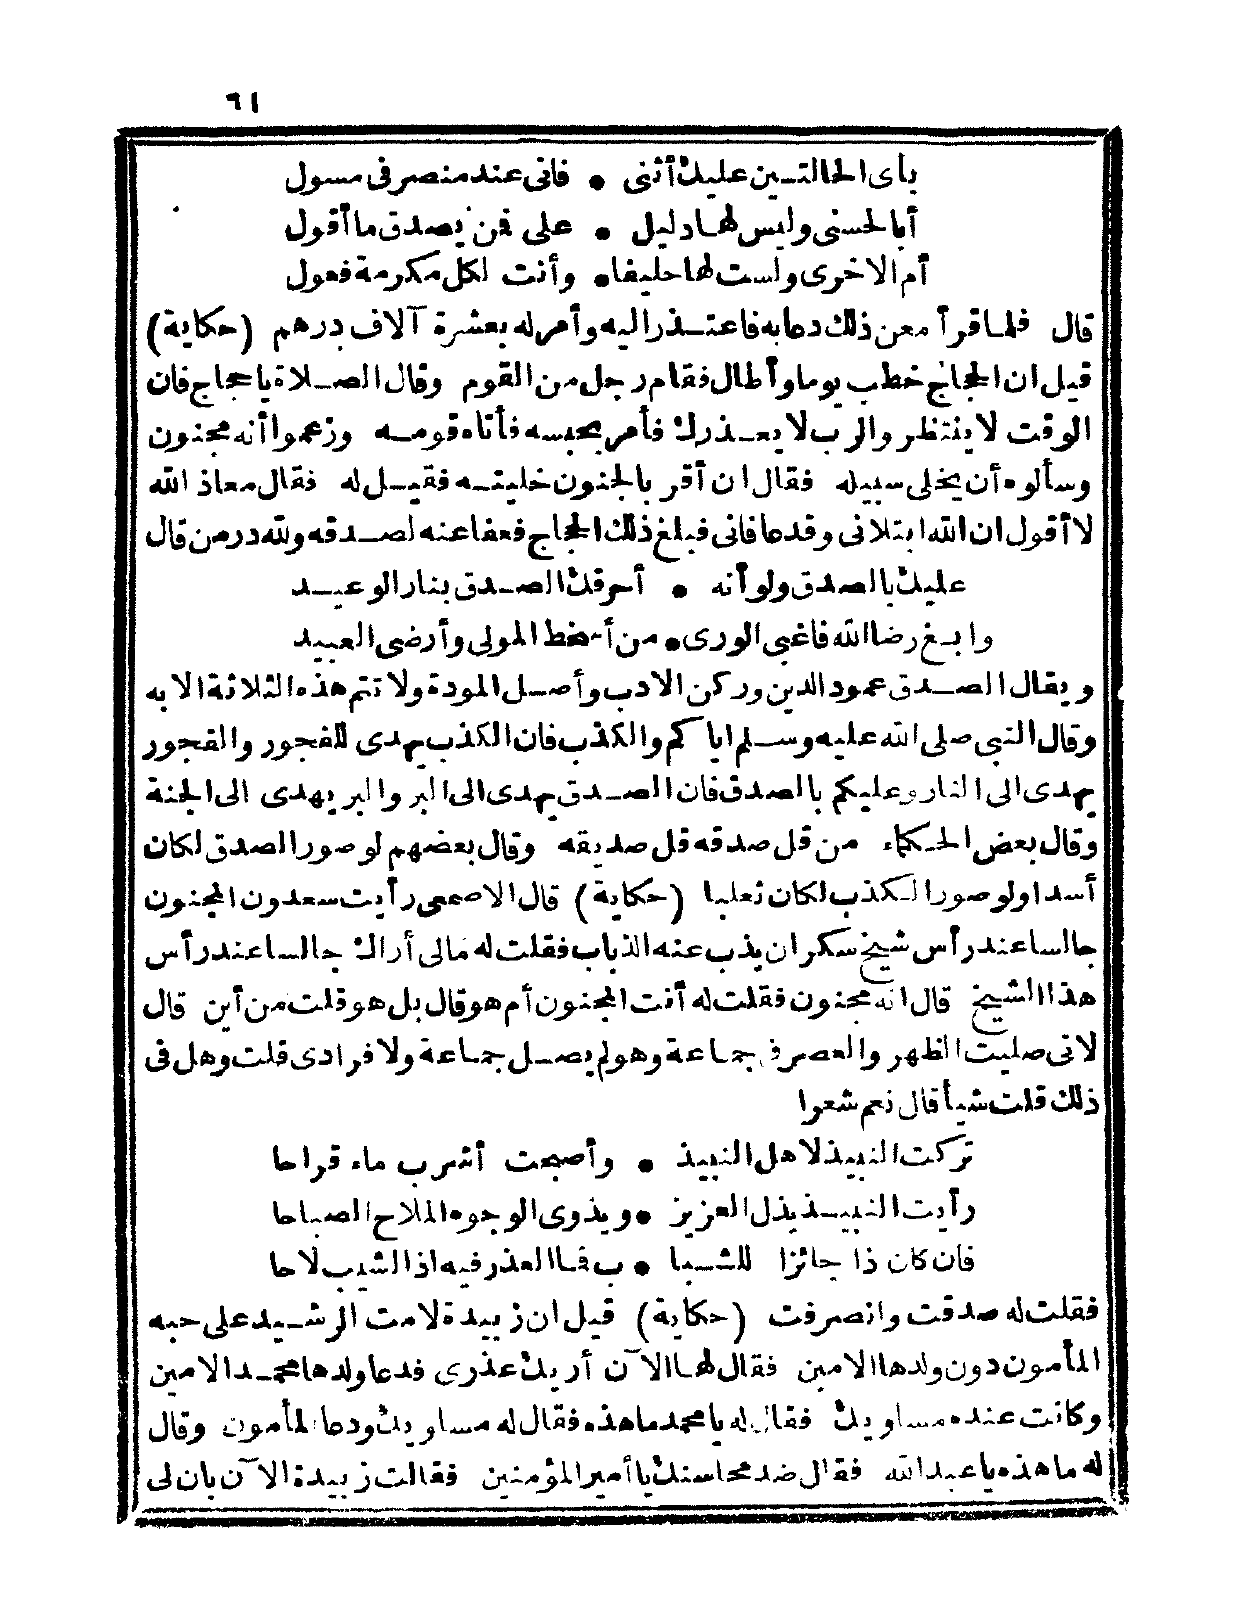 ٦١
بأى الحالتين عليك أثنى • فانى عند منصرفى مسول
أبا الحسنى وليس لها دليل • على فمن يصدق ما أقول
أم الاخرى ولست لها حليفا • وأنت لكل مكرمة فعول
قال فلما قرأ معن ذلك دعا به فاعتذر اليه وأمر له بعشرة آلاف درهم (حكاية)
قيل ان الحجاج خطب يوما وأطال فقام رجل من القوم وقال الصلاة يا حجاج فان
الوقت لا ينتظر والرب لا يعذرك فأمر بحبسه فأتاه قومه وزعموا أنه مجنون
وسألوه أن يخلى سبيله فقال ان أقر بالجنون خليته فقيل له فقال معاذ الله
لا أقول ان الله ابتلانى وقد عافانى فبلغ ذلك الحجاج فعفا عنه لصدقه ولله در من قال
عليك بالصدق ولو أنه • أحرقك الصدق بنار الوعيد
وابغ رضا الله فاغبى الورى • من أسخط المولى وأرضى العبيد
ويقال الصدق عمود الدين وركن الادب وأصل المودة ولا تتم هذه الثلاثة الا به
وقال النبى صلى الله عليه وسلم اياكم والكذب فان الكذب يهدى للفجور والفجور
يهدى الى النار وعليكم بالصدق فان الصدق يهدى الى البر والبر يهدى الى الجنة
وقال بعض الحكماء من قل صدقه قل صديقه وقال بعضهم لو صور الصدق لكان
أسدا ولو صور الكذب لكان ثعلبا (حكاية) قال الاصمعى رأيت سعدون المجنون
جالسا عند رأس شيخ سكران يذب عنه الذباب فقلت له مالى أراك جالسا عند رأس
هذا الشيخ قال انه مجنون فقلت له أنت المجنون أم هو قال بل هو قلت من أين قال
لانى صليت الظهر والعصر فى جماعة وهو لم يصل جماعة ولا فرادى قلت وهل فى
ذلك قلت شيأ قال نعم شعرا
تركت النبيذ لاهل النبيذ • وأصبحت أشرب ماء قراحا
رأيت النبيذ يذل العزيز • ويذوى الوجوه الملاح الصباحا
فان كان ذا جائزا للشبا • ب فما العذر فيه اذا الشيب لاحا
فقلت له صدقت وانصرفت (حكاية) قيل ان زبيدة لامت الرشيد على حبه
المأمون دون ولدها الامين فقال لها الآن أريك عذرى فدعا ولدها محمد الامين
وكانت عنده مساويك فقال له يا محمد ما هذه فقال له مساويك ودعا المأمون وقال
له ما هذه يا عبد الله فقال ضد محاسنك يا أمير المؤمنين فقالت زبيدة الآن بان لى